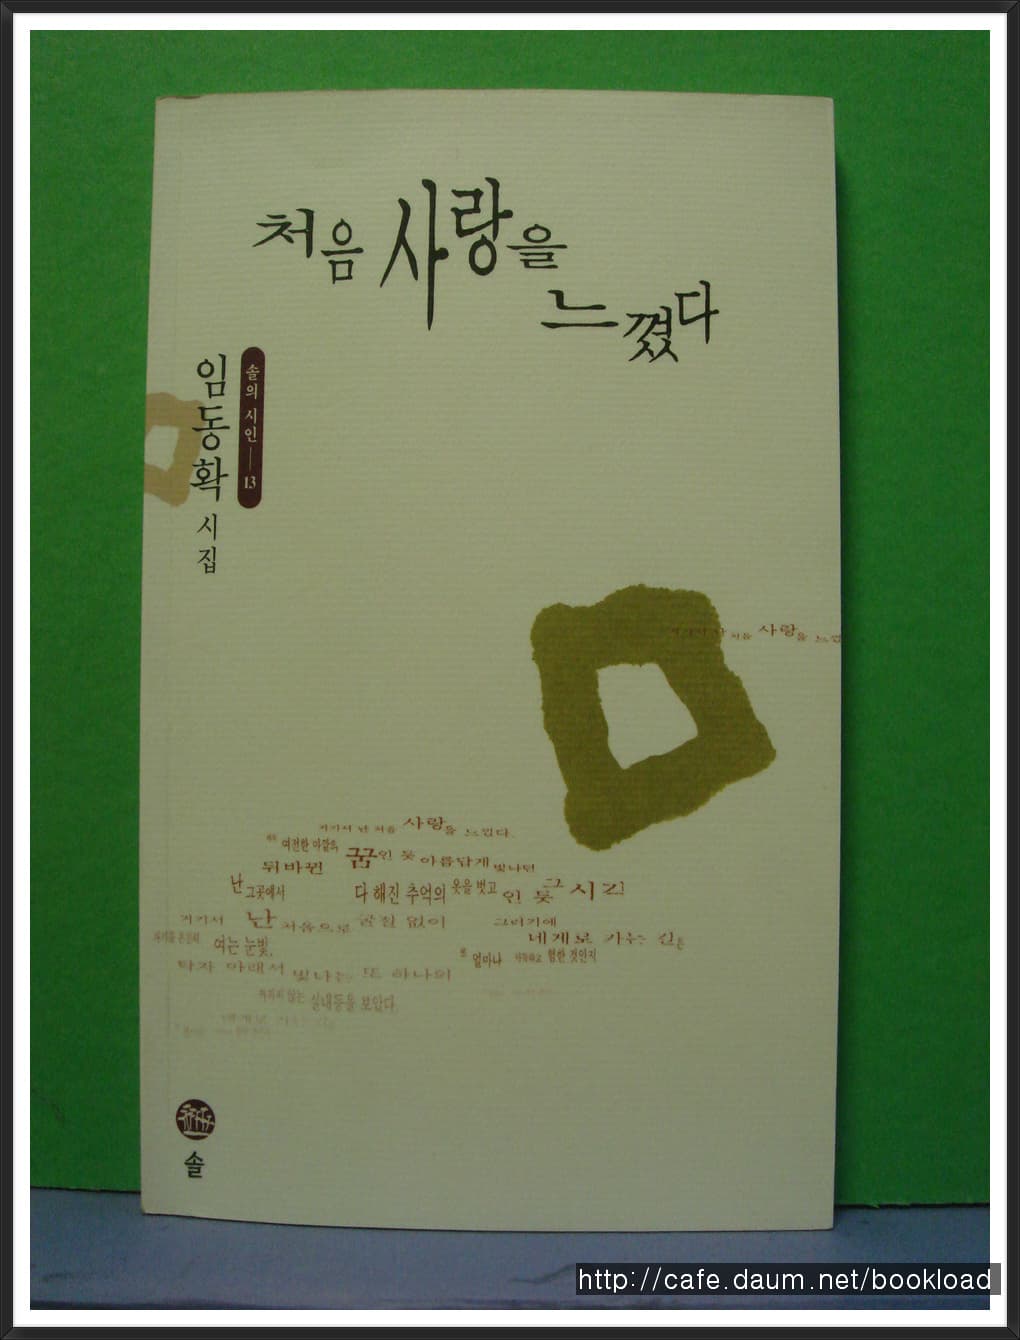 처음 사랑을
느꼈다
솔의 시인 — 13
임동확 시집
처음 사랑을 느꼈
거기서 난 처음 사랑을 느꼈다.
여전한 아람의
뒤바뀐 꿈인 듯 아름답게 빛나던
난 그곳에서 다 해진 추억의 옷을 벗고 인 듯
거기서 난 처음으로 끊임 없이 그러기에
여는 눈빛, 네게로 가는 길은
얼마나 험한 것인지
탁자 아래서 빛나는 또 하나의
실내등을 보았다.
네게로 가는
솔
http://cafe.daum.net/bookload